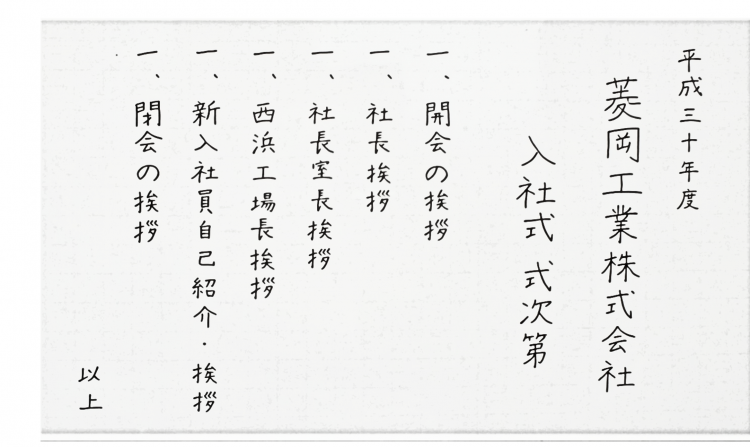 平成三十年度
菱岡工業株式会社
入社式 式次第
一、開会の挨拶
一、社長挨拶
一、社長室長挨拶
一、西浜工場長挨拶
一、新入社員自己紹介・挨拶
一、閉会の挨拶
以上